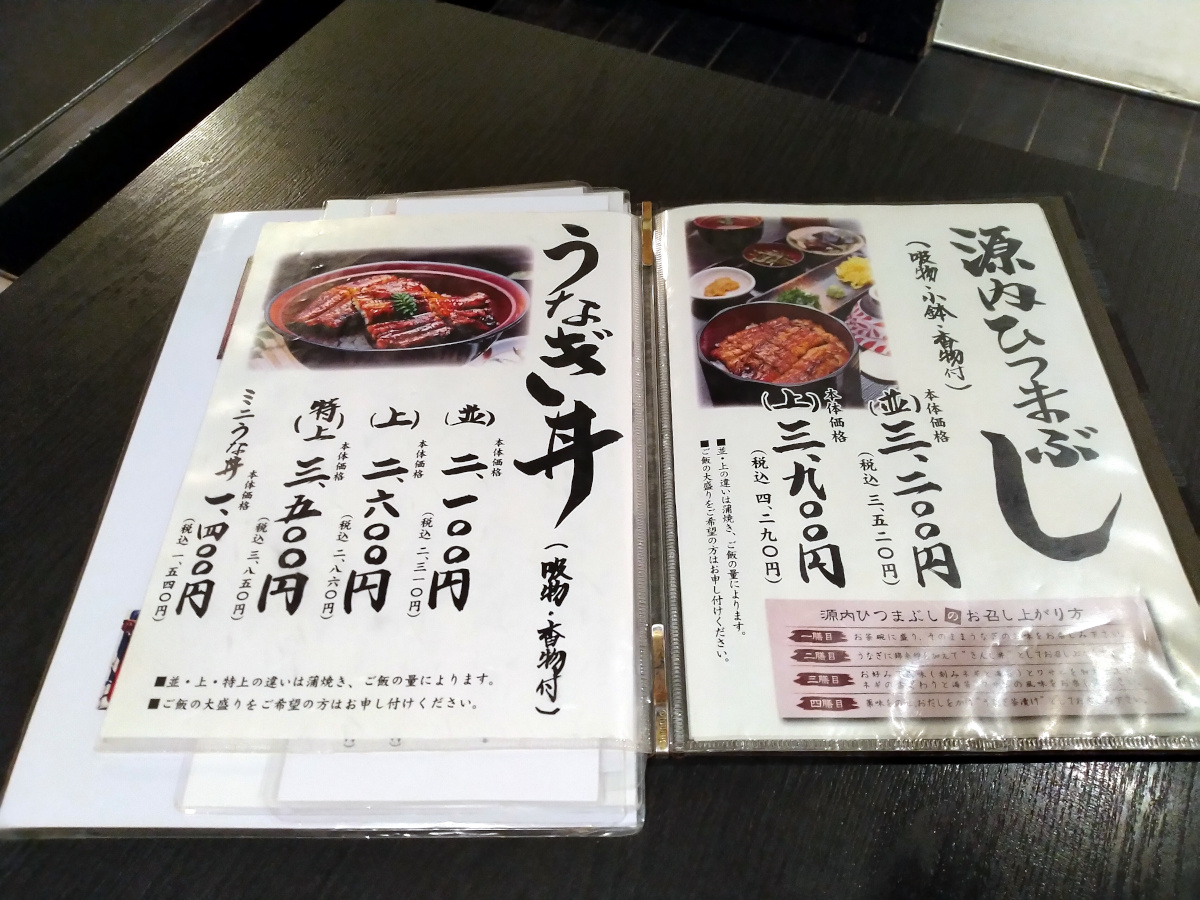 うなぎ丼
(吸物・香物付)
(並)
本体価格
二、一〇〇円
(税込 二、三一〇円)
(上)
本体価格
二、六〇〇円
(税込 二、八六〇円)
(特上)
本体価格
三、五〇〇円
(税込 三、八五〇円)
ミニうな丼
本体価格
一、四〇〇円
(税込 一、五四〇円)
■並・上・特上の違いは蒲焼き、ご飯の量によります。
■ご飯の大盛りをご希望の方はお申し付けください。
源内ひつまぶし
(吸物・小鉢・香物付)
(並)
本体価格
三、二〇〇円
(税込 三、五二〇円)
(上)
本体価格
三、九〇〇円
(税込 四、二九〇円)
■並・上の違いは蒲焼き、ご飯の量によります。
■ご飯の大盛りをご希望の方はお申し付けください。
源内ひつまぶしのお召し上がり方
一膳目 お茶碗に盛り、そのままうなぎの
二膳目 うなぎに
三膳目 お好み
ネギの
四膳目 薬味を